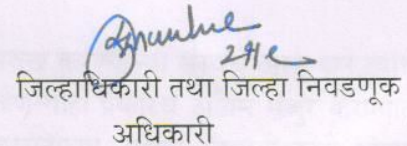 जिल्हाधिकारी तथा जिल्हा निवडणूक
अधिकारी